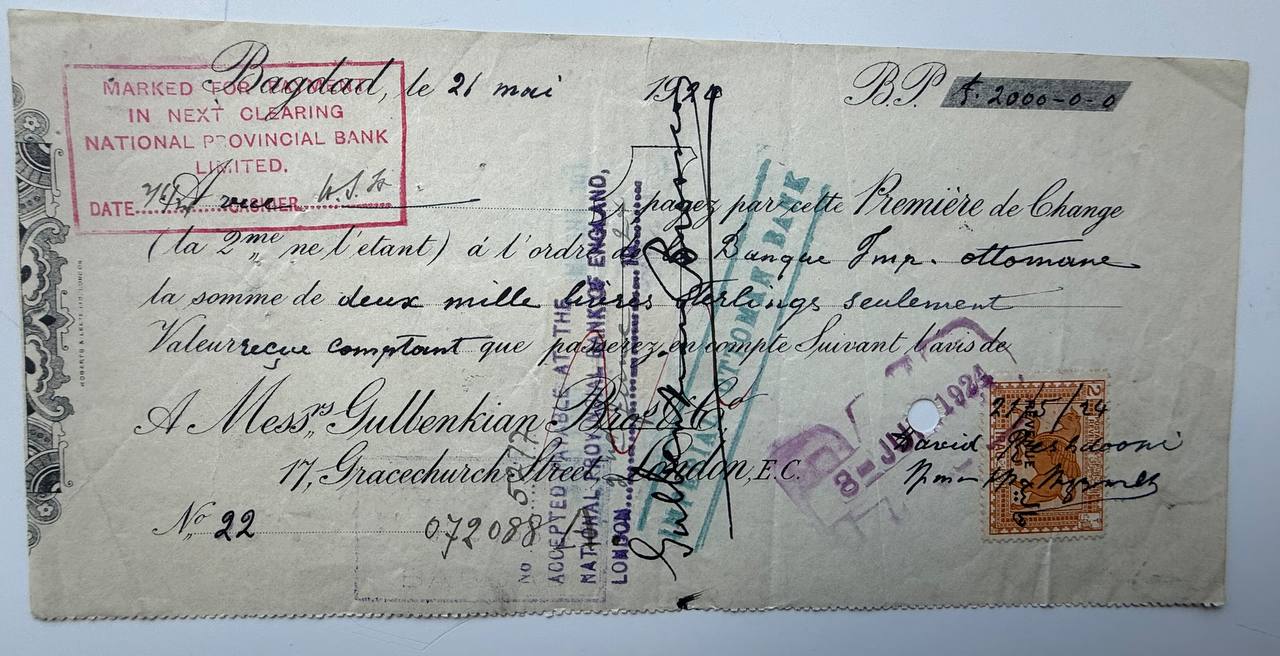 Bagdad, le 26 mai 1924
B.P. £. 2000-0-0
MARKED FOR PAYMENT
IN NEXT CLEARING
NATIONAL PROVINCIAL BANK
LIMITED.
DATE CASHIER
A vue, payez par cette Première de Change
(la 2me ne l'etant) á l'ordre de la Banque Imp. ottomane
la somme de deux mille livres Sterlings seulement
Valeur reçue comptant que passerez en compte Suivant l'avis de
A Messrs Gulbenkian Bros & Co
17, Gracechurch Street, London, E.C.
No 22
072088
No 5277
ACCEPTED PAYABLE AT THE
NATIONAL PROVINCIAL BANK OF ENGLAND,
LONDON
Gulbenkian Brothers
IMPERIAL OTTOMAN BANK
PAID
8-JN 1924
2
REVENUE
21/5/24
David